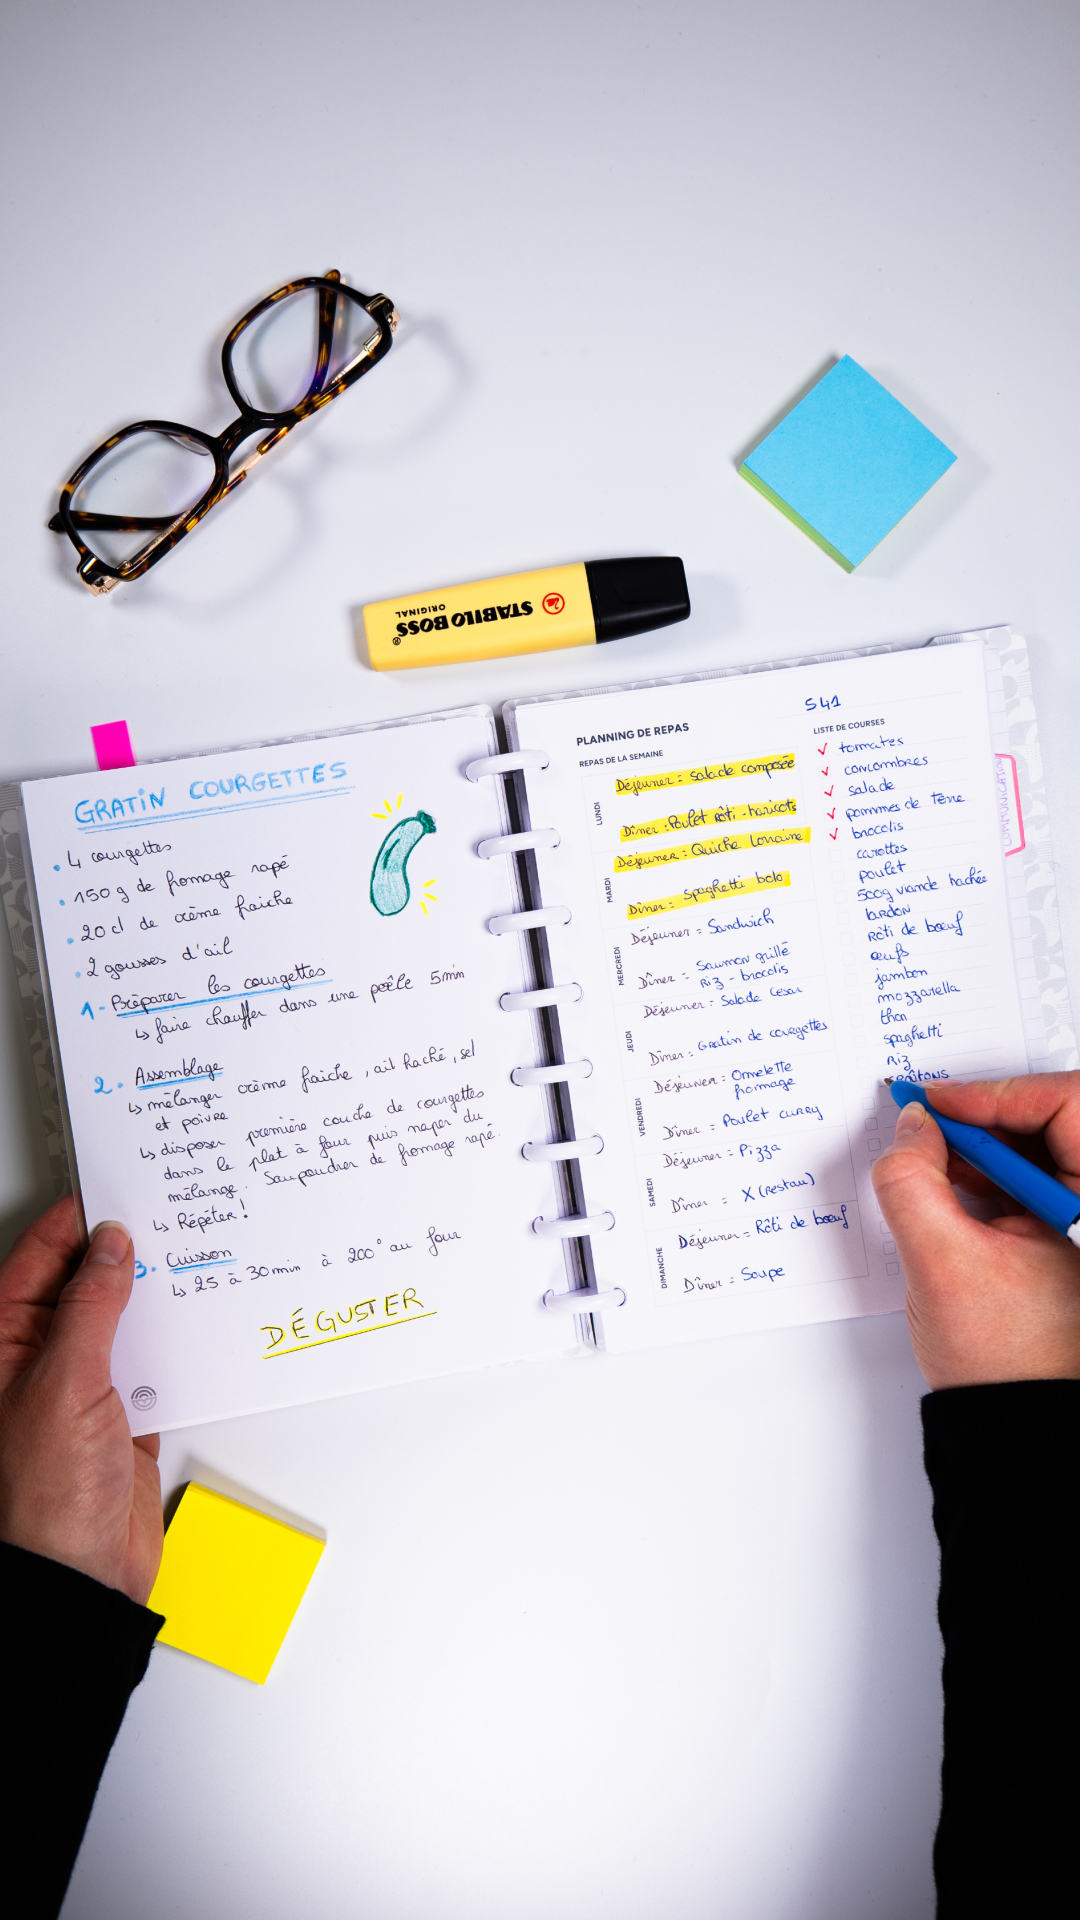 STABILO BOSS®
ORIGINAL
GRATIN COURGETTES
4 courgettes
150 g de fromage rapé
20 cl de crème fraiche
2 gousses d'ail
1- Préparer les courgettes
↳ faire chauffer dans une poêle 5min
2. Assemblage
↳ mélanger crème fraiche, ail haché, sel
et poivre
↳ disposer première couche de courgettes
dans le plat à four puis naper du
mélange. Saupoudrer de fromage rapé.
↳ Répéter!
3. Cuisson
↳ 25 à 30min à 200° au four
DÉGUSTER
S41
PLANNING DE REPAS
REPAS DE LA SEMAINE
LUNDI
Déjeuner = Salade composée
Dîner = Poulet rôti - haricots
MARDI
Déjeuner = Quiche Lorraine
Dîner = Spaghetti bolo
MERCREDI
Déjeuner = Sandwich
Dîner = Saumon grillé
Riz - brocolis
JEUDI
Déjeuner = Salade César
Dîner = Gratin de courgettes
VENDREDI
Déjeuner = Omelette
fromage
Dîner = Poulet curry
SAMEDI
Déjeuner = Pizza
Dîner = X (restau)
DIMANCHE
Déjeuner = Rôti de boeuf
Dîner = Soupe
LISTE DE COURSES
tomates
concombres
salade
pommes de terre
brocolis
carottes
poulet
500g viande hachée
lardon
Rôti de boeuf
œufs
jambon
mozzarella
thon
spaghetti
Riz
COMMUNICATION